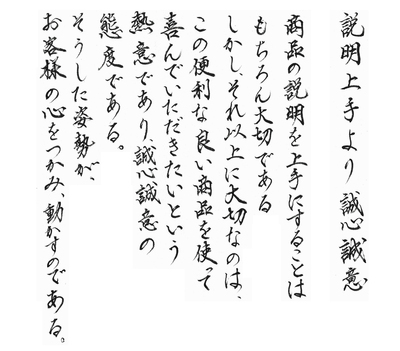 説明上手より誠心誠意
商品の説明を上手にすることは
もちろん大切である
しかし、それ以上に大切なのは、
この便利な良い商品を使って
喜んでいただきたいという
熱意であり、誠心誠意の
態度である。
そうした姿勢が、
お客様の心をつかみ、動かすのである。